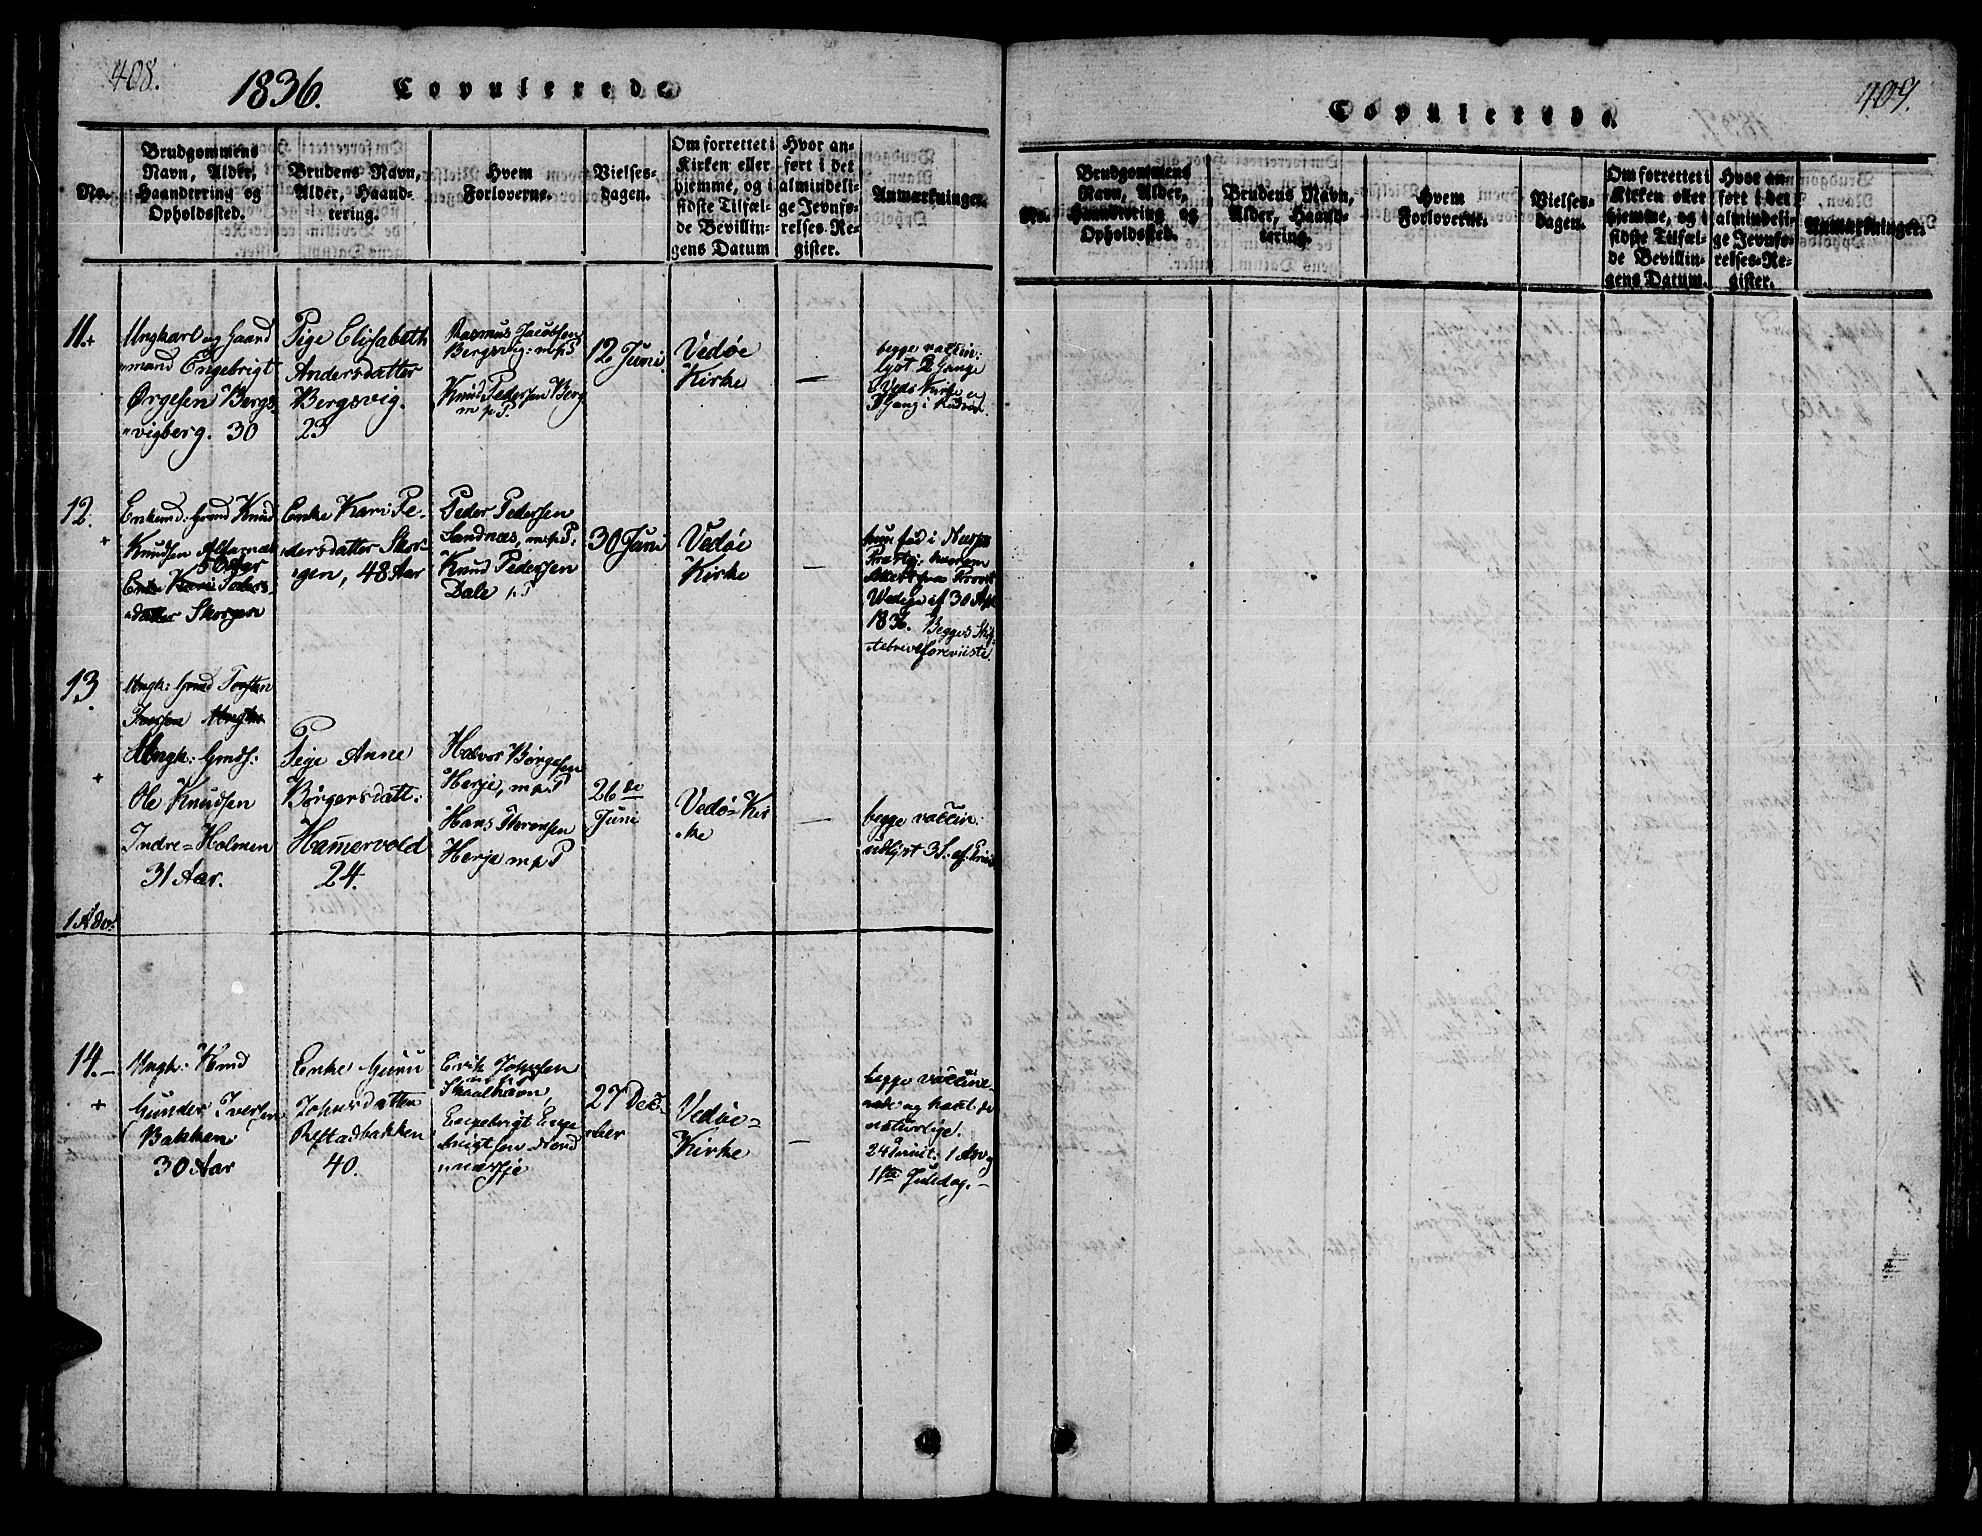 408.
1836.
Copulerede.
No.
Brudgommens
Navn, Alder,
Haandtering og
Opholdssted.
Brudens Navn,
Alder, Haand-
tering.
Hvem
Forloverne.
Vielses-
dagen.
Om forrettet i
Kirken eller
hjemme, og i
sidste Tilfæl-
de Bevillin-
gens Datum
Hvor an-
ført i det
almindeli-
ge Jevnfø-
relses-Re-
gister.
Anmærkninger.
11.+
Ungkarl og Gaard
mand Engebrigt
Ørgesen Bergs
vigberg. 30
Pige Elisabeth
Andersdatter
Bergsvig.
23
Rasmus Jacobsen
Bergsvig: m.p.P
Knud Pedersen Berg
m.p.P.
12 Juni
Vedøe
Kirke
—
begge vaccin:
lyst 2 Gange
i Kirke
1 Gang i
12.
+
Enkemd: Grmd Knud
Knudsen
56 Aar
Enke Kari Peders
datter Skorgen
Enke Kari Pe-
dersdatter Skor-
gen, 48 Aar
Peder Pedersen
Sandnæs, m.p.P.
Knud Pedersen
Dale p.P
30 Juni
Vedøe
Kirke
—
hun fød i
Præstegj:
Attest fra Provst
af 30 Apr
1836. Begges Skif-
tebreve foreviiste.
13.
+
Ungk: Grmd Torsten
Iversen
Ungk: Grmds:
Ole Knudsen
Indre-Holmen
31 Aar.
Pige Anne
Børgersdatt:
Hamervold
24.
Halvor Børgesen
Herje, m.p.P
Hans
Herje m.p.P
26de
Juni
Vedø-Kir
ke
—
begge vaccin:
udlyst 3
1 Adv.
14.
+
Ungk: Knud
Gunder Iversen
Bakken
30 Aar
Enke Guru
Johnsdatter
Refstadbakken
40.
Erik Johnsen
Skaalhavn,
Engebrigt Enge
brigtsen Nord
27 Dec.
ber
Vedøe-
Kirke
—
begge vaccine-
rede og havt de
naturlige.
1 Adv og
1ste Juledag.
409.
Copulerede.
No.
Brudgommens
Navn, Alder,
Haandtering og
Opholdssted.
Brudens Navn,
Alder, Haand-
tering.
Hvem
Forloverne.
Vielses-
dagen.
Om forrettet i
Kirken eller
hjemme, og i
sidste Tilfæl-
de Bevillin-
gens Datum.
Hvor an-
ført i det
almindeli-
ge Jevnfø-
relses-Re-
gister.
Anmærkninger.